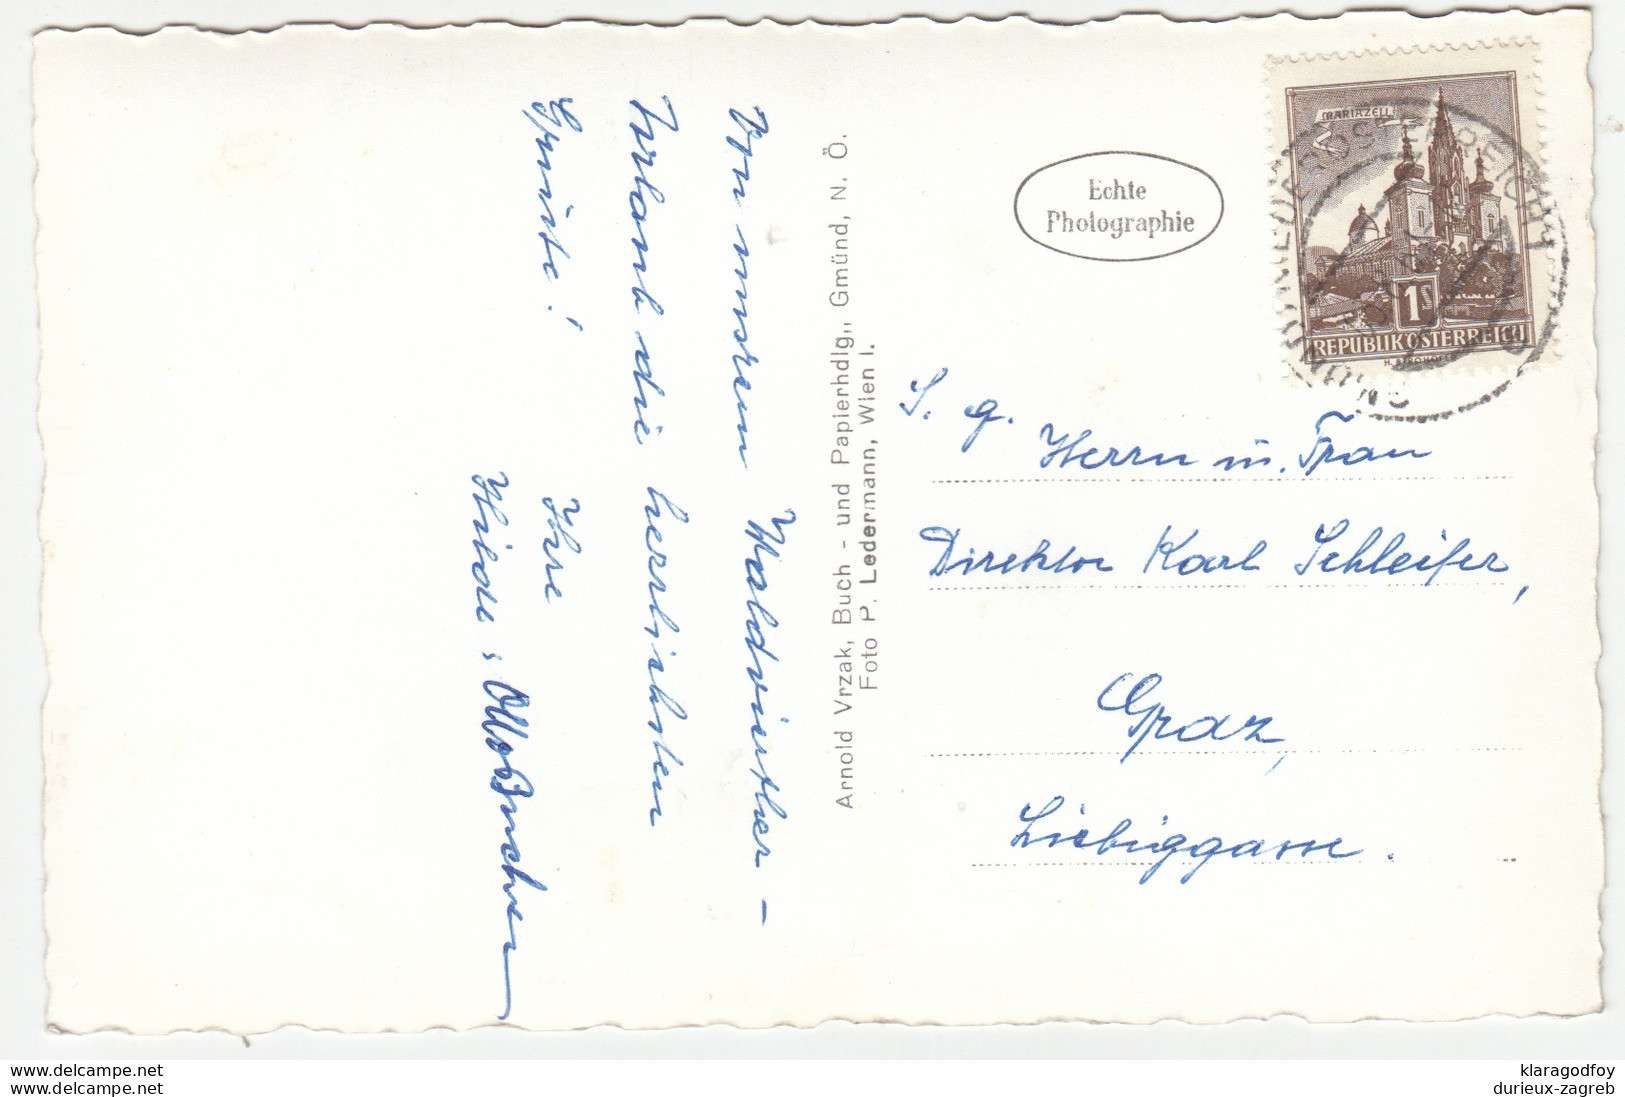 Von unserem Waldviertler-
Urlaub die herzlichsten
Grüße!
Ihre
Hilde u. Otto
Arnold Vrzak, Buch - und Papierhdlg,, Gmünd, N. Ö.
Foto P. Ledermann, Wien I.
Echte
Photographie
MARIAZELL
1S
REPUBLIK ÖSTERREICH
GMÜND NIEDERÖSTERREICH
S. g.
Herrn u. Frau
Direktor Karl Schleifer,
Graz,
Liebiggasse.
klaragodfoy
durieux-zagreb
klaragodfoy
durieux-zagreb